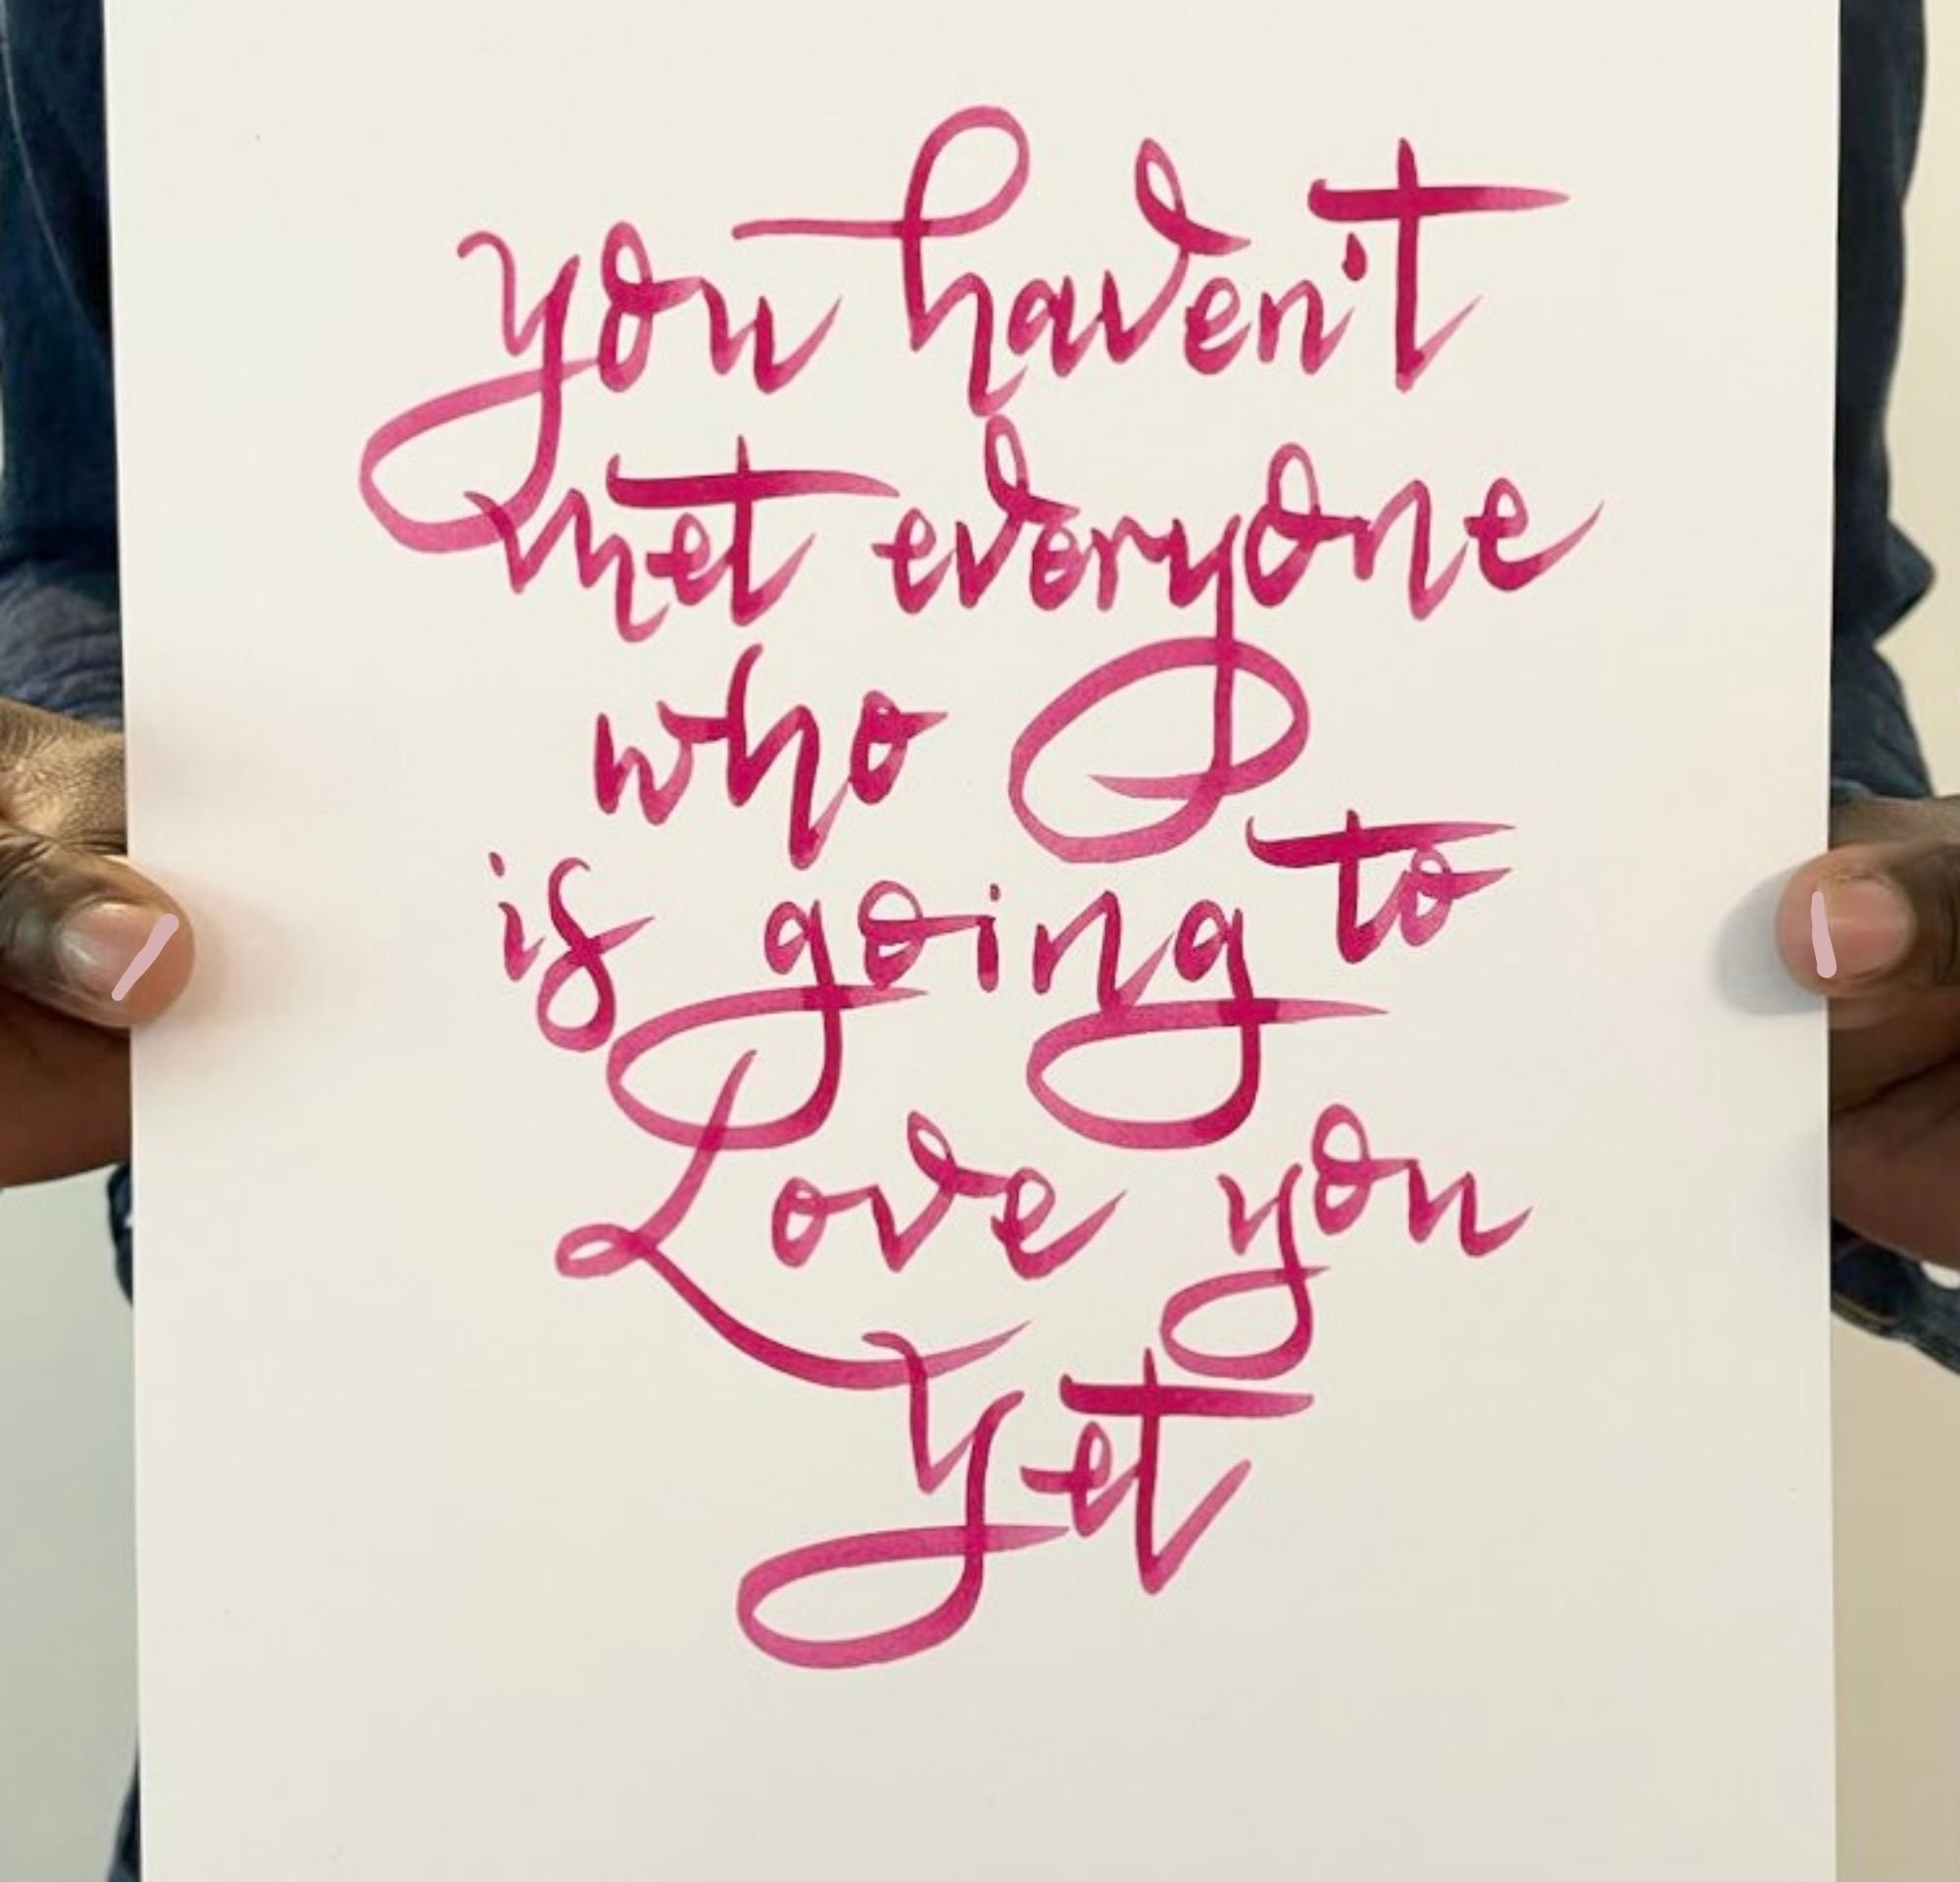 you haven't
met everyone
who
is going to
Love you
Yet